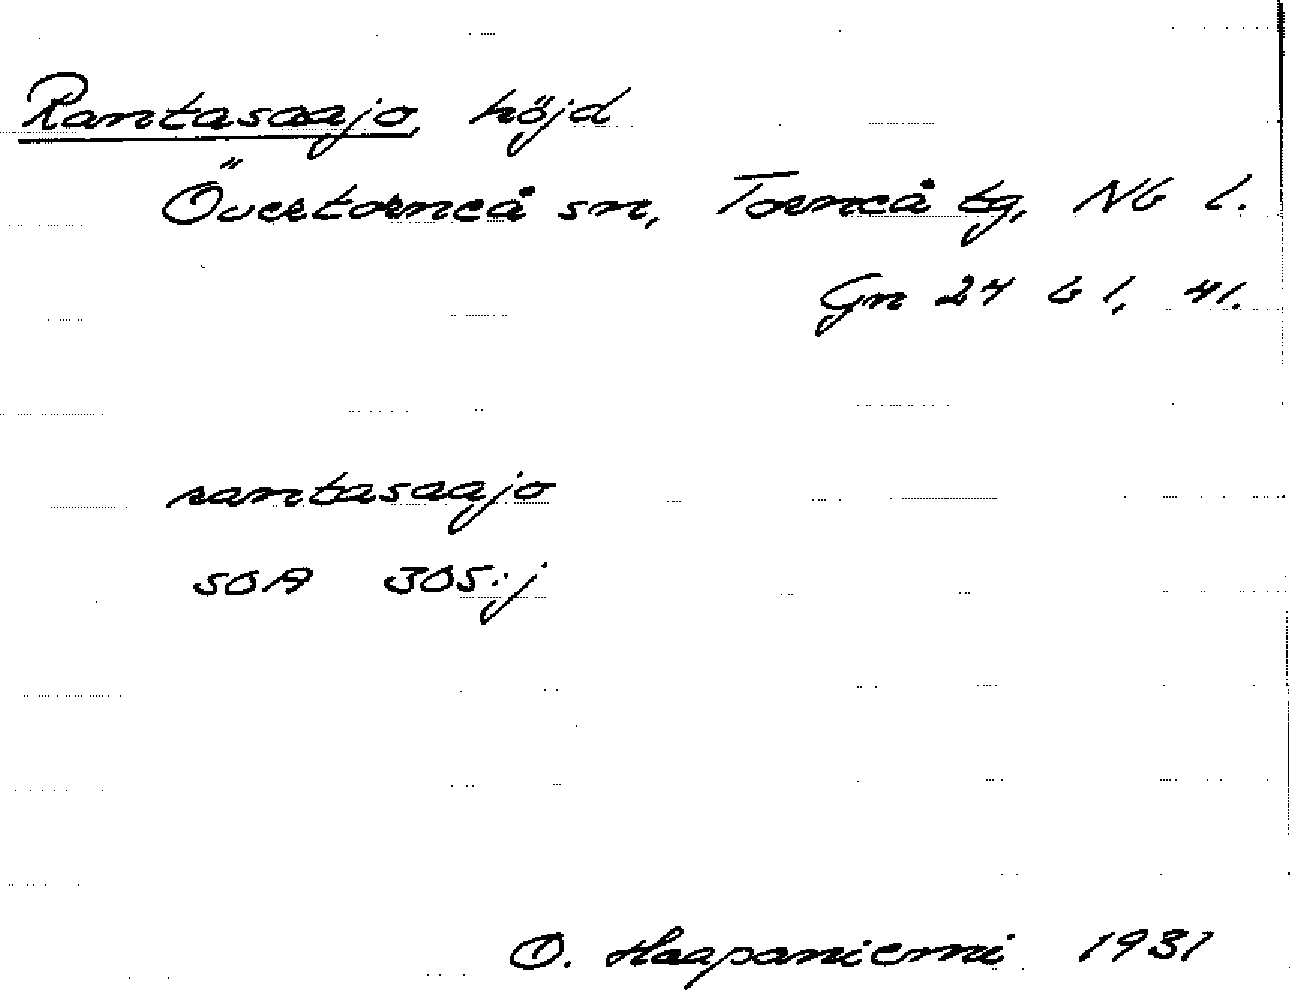 Rantasaajo, höjd
Övertorneå sn, Torneå tg, Nb l.
Gn 24 b 1, 41.
rantasaajo
SOA 305:j
O. Haapaniemi 1931